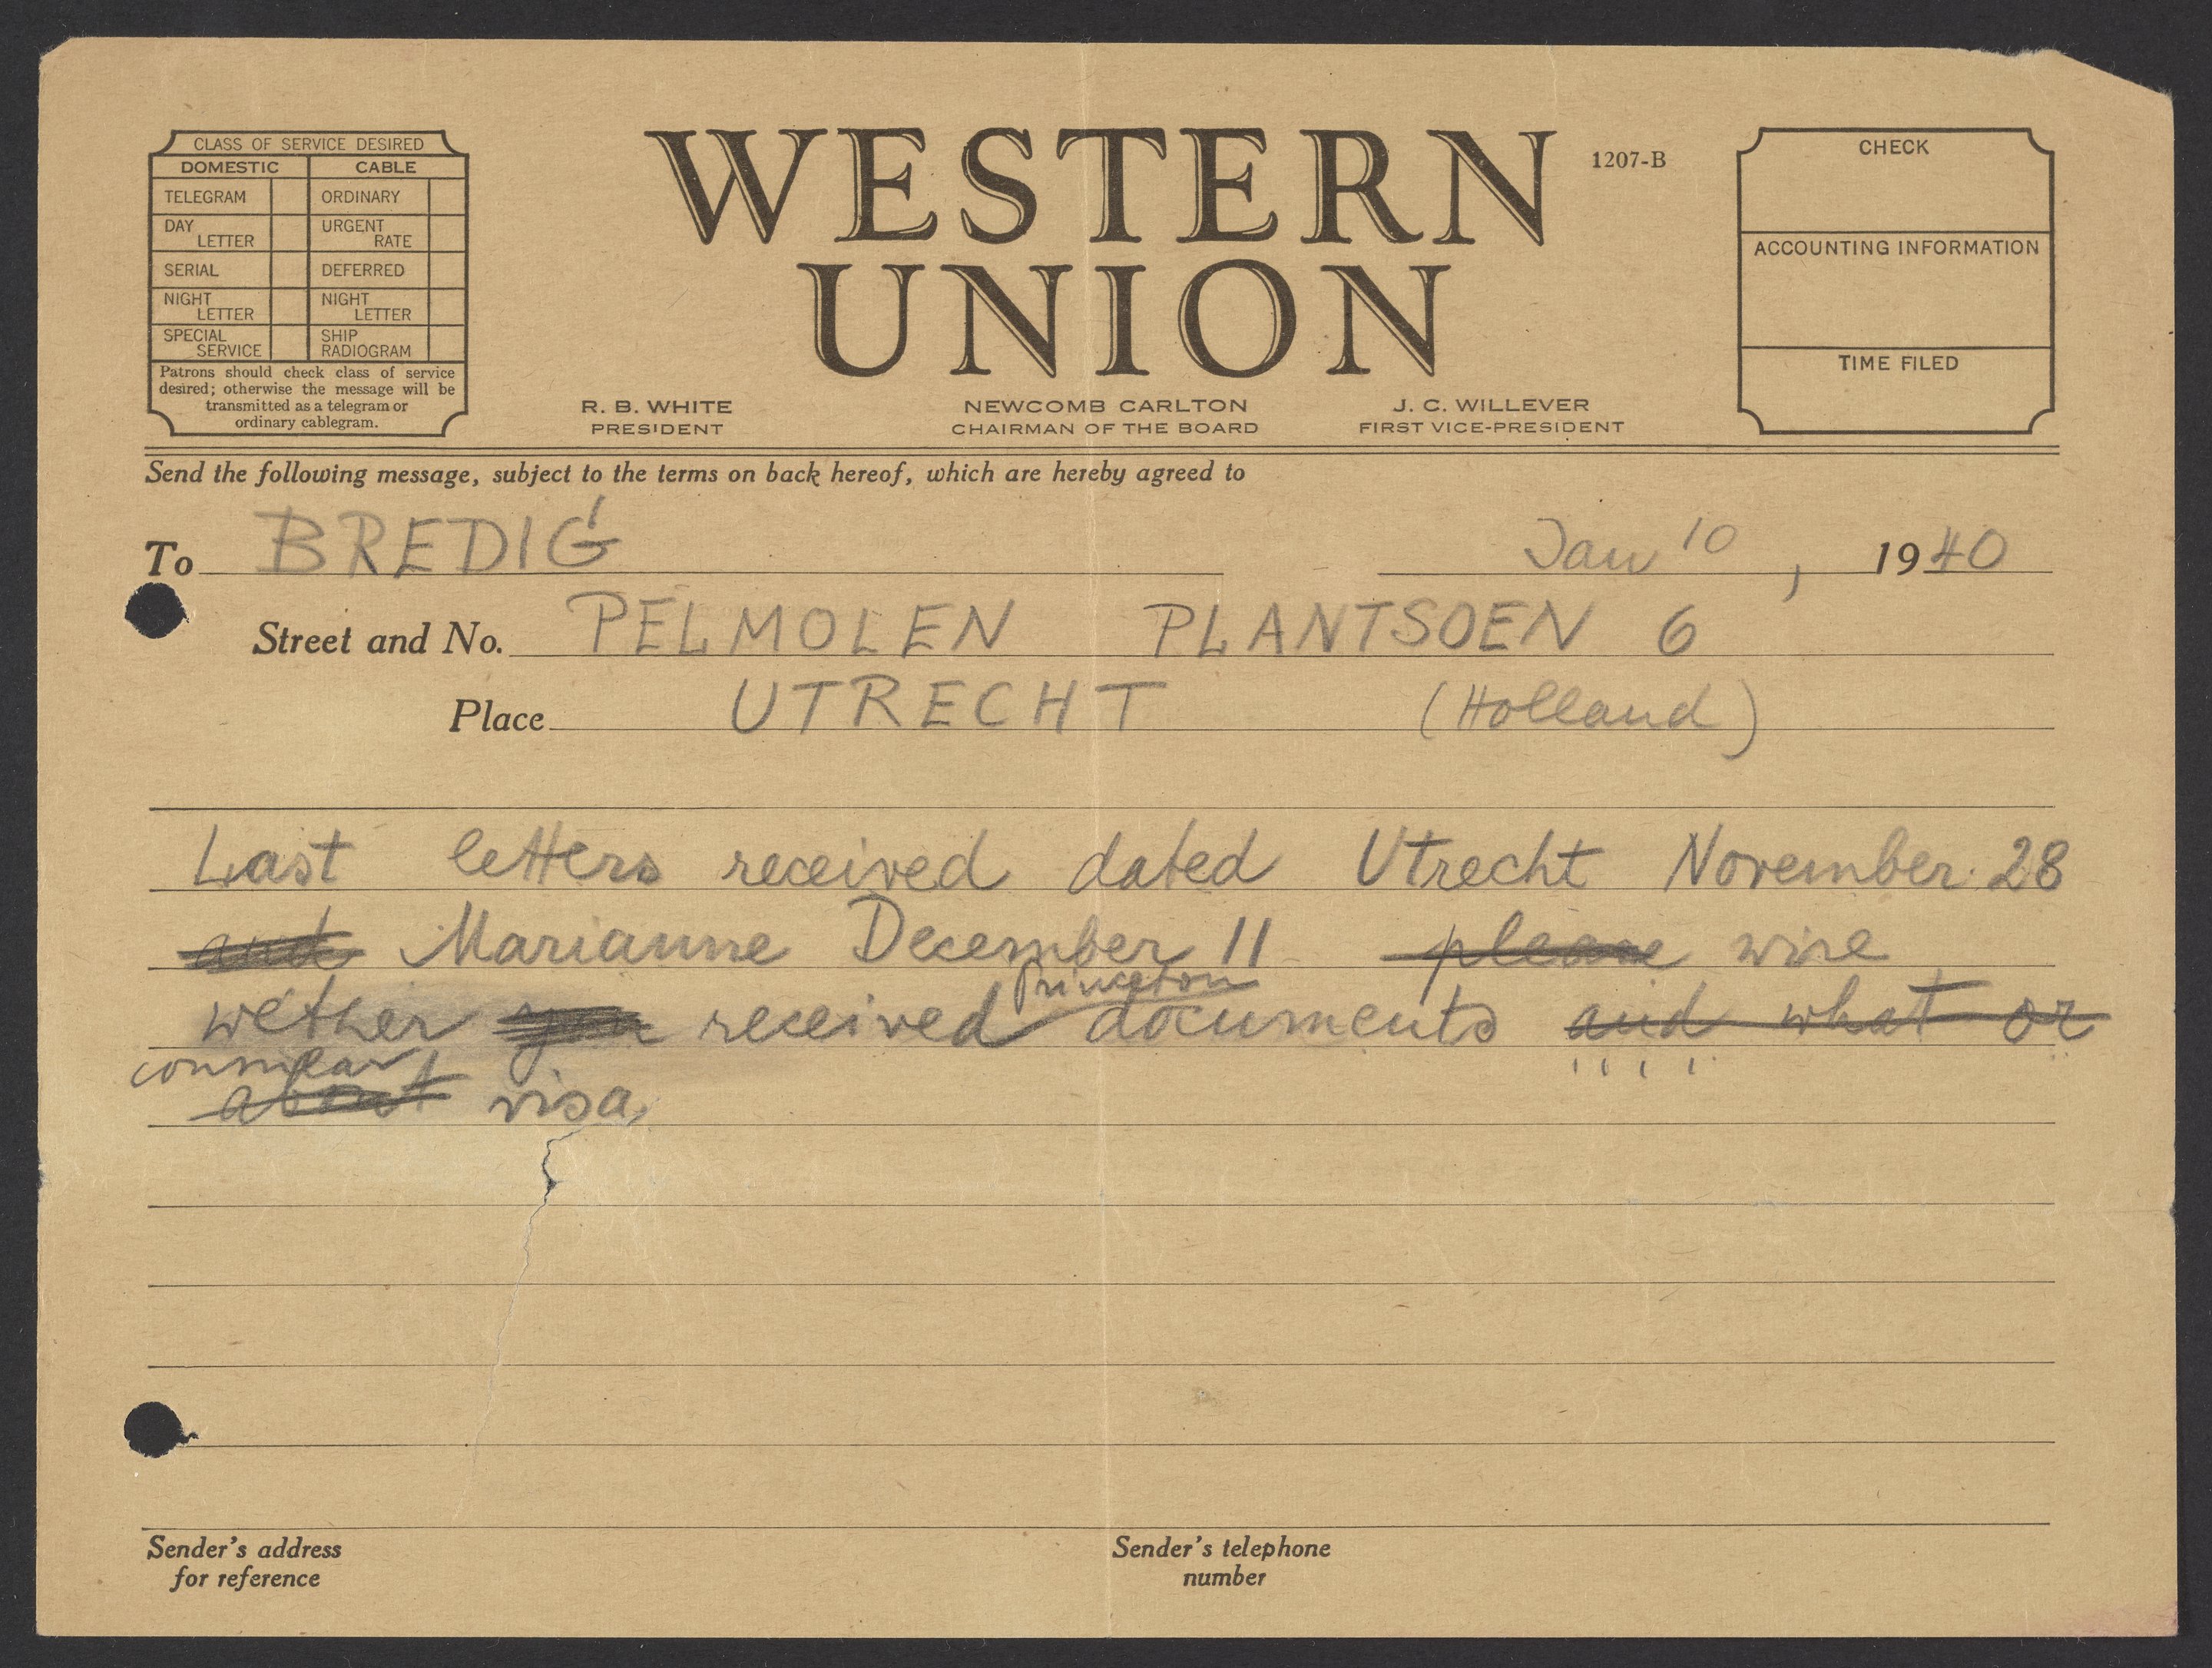 CLASS OF SERVICE DESIRED
DOMESTIC CABLE
TELEGRAM ORDINARY
DAY LETTER URGENT RATE
SERIAL DEFERRED
NIGHT LETTER NIGHT LETTER
SPECIAL SERVICE SHIP RADIOGRAM
Patrons should check class of service
desired; otherwise the message will be
transmitted as a telegram or
ordinary cablegram.
WESTERN
UNION
1207-B
R. B. WHITE
PRESIDENT
NEWCOMB CARLTON
CHAIRMAN OF THE BOARD
J. C. WILLEVER
FIRST VICE-PRESIDENT
CHECK
ACCOUNTING INFORMATION
TIME FILED
Send the following message, subject to the terms on back hereof, which are hereby agreed to
To BREDIG Jan 10, 1940
Street and No. PELMOLEN PLANTSOEN 6
Place UTRECHT (Holland)
Last letters received dated Utrecht November 28
and Marianne December 11 please wire
Princeton
wether you received documents and what or
about visa
Sender's address
for reference
Sender's telephone
number